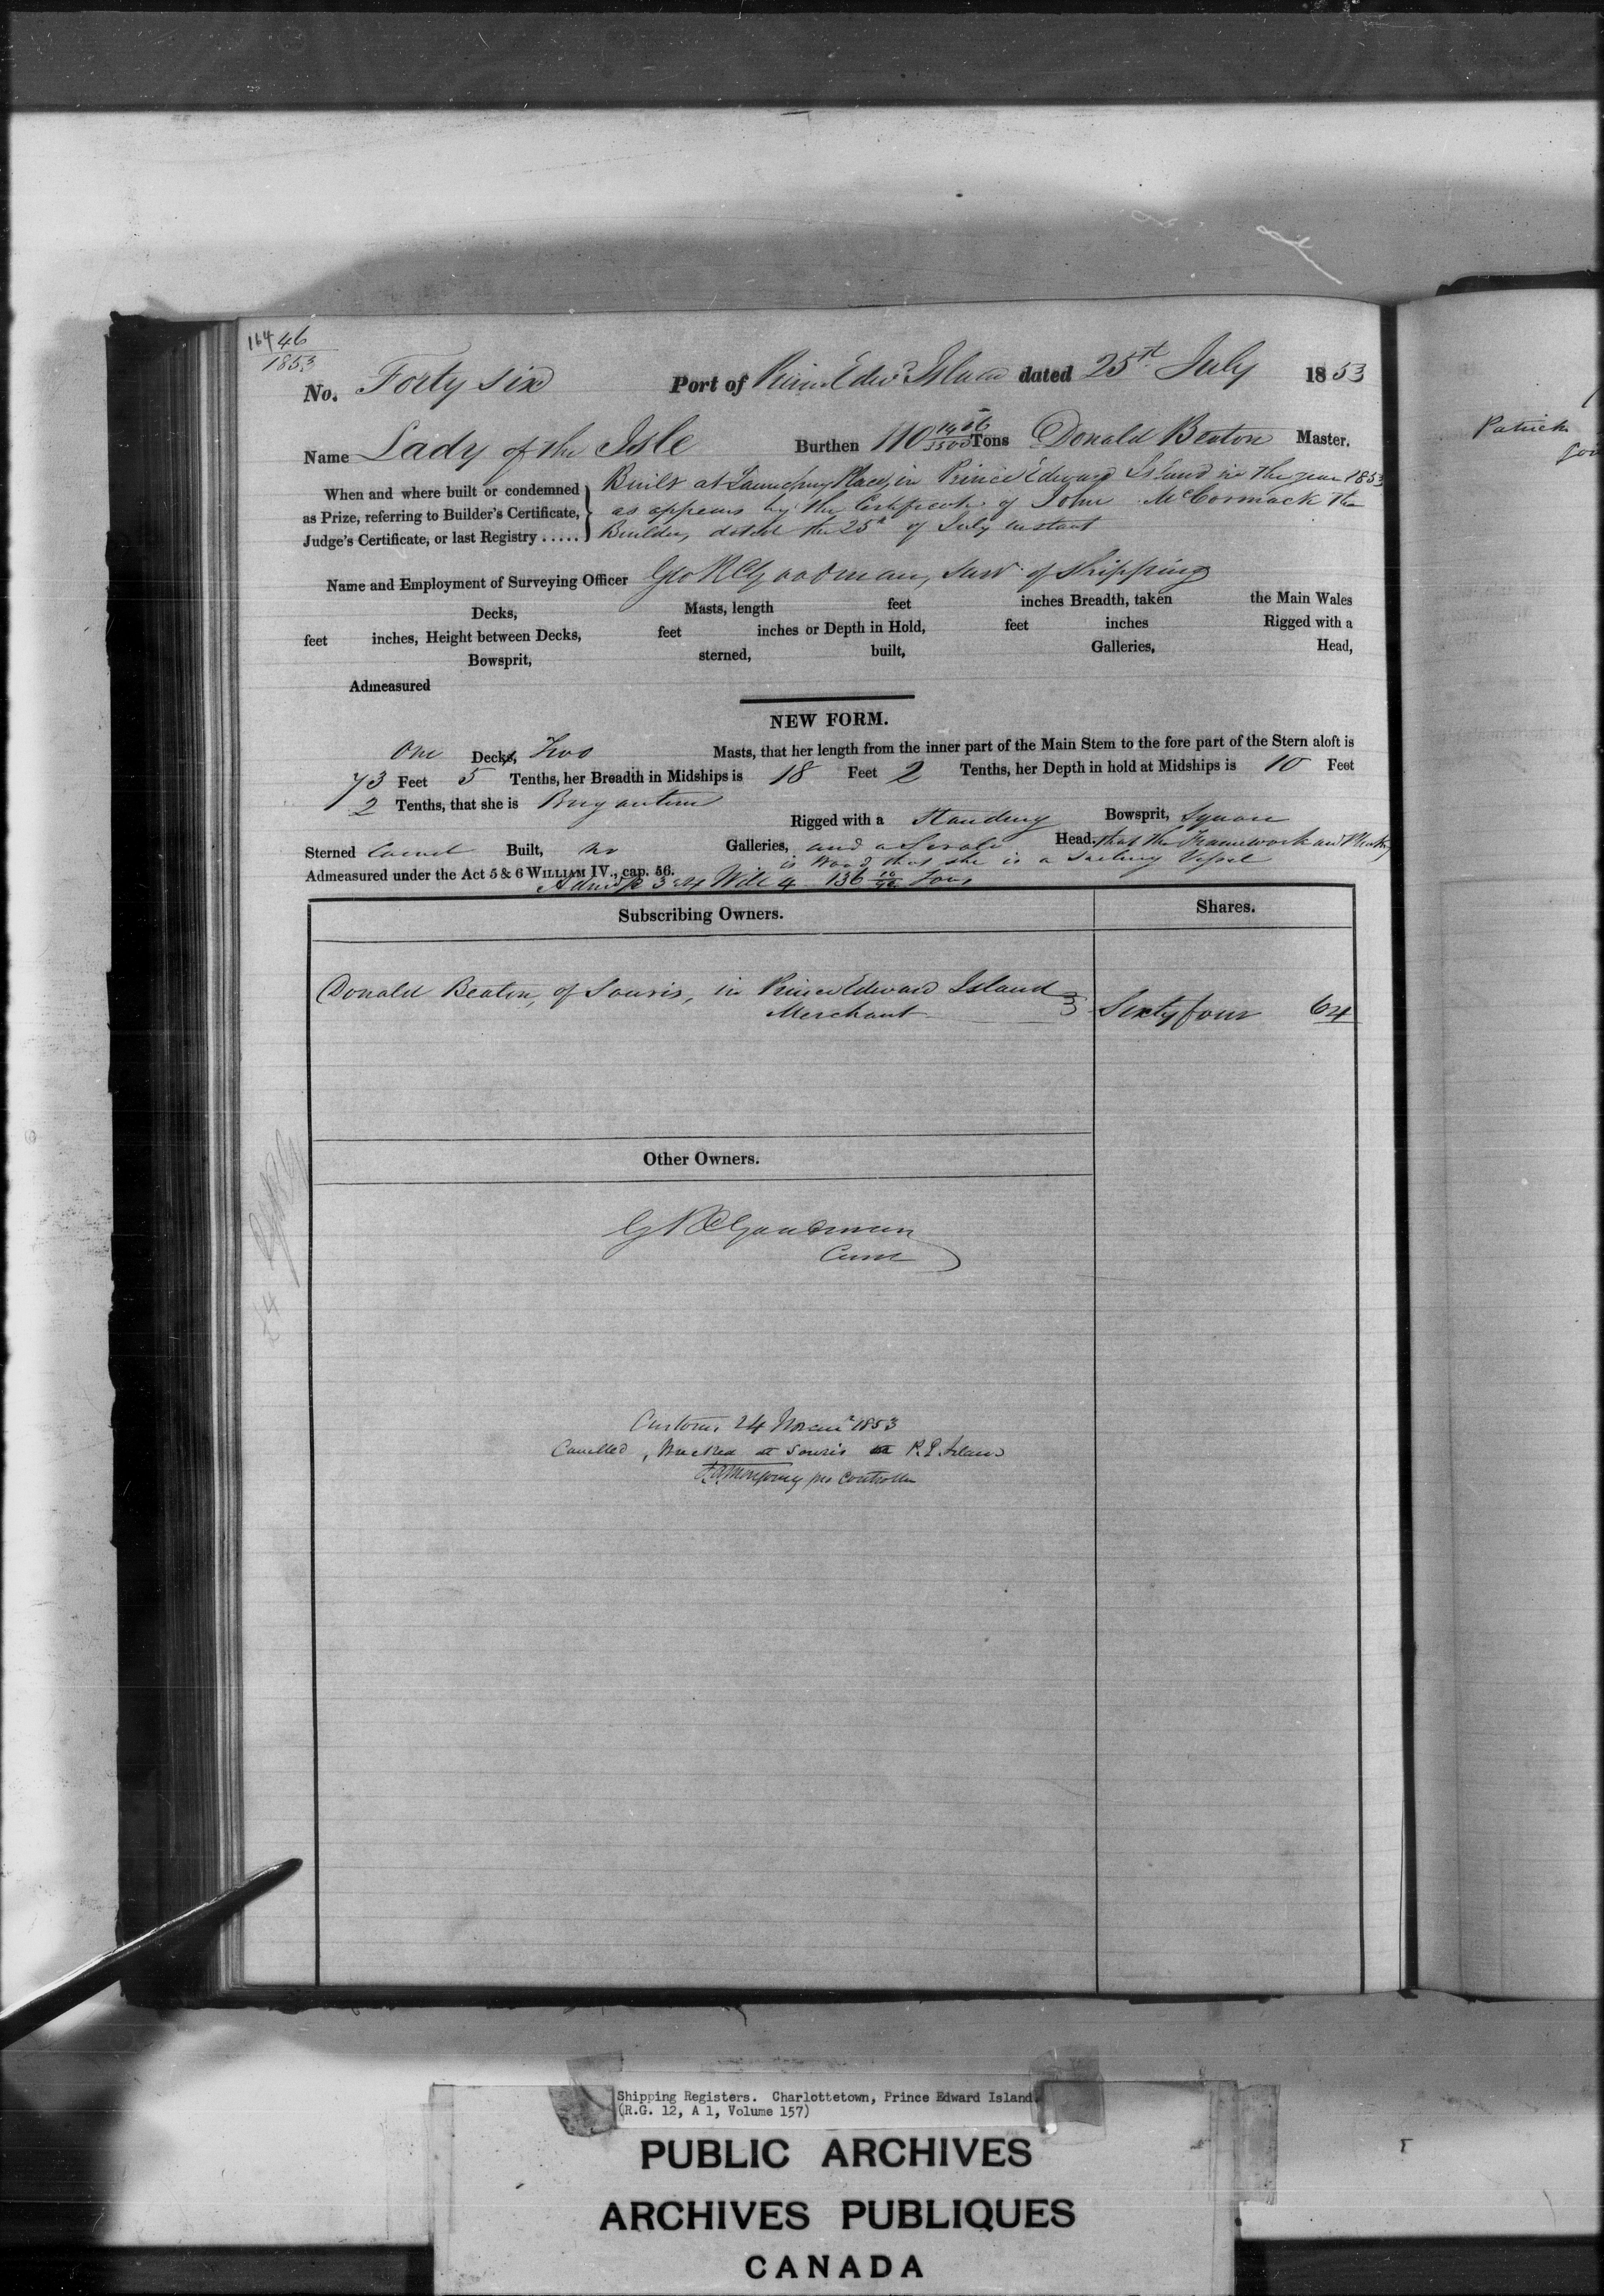 164 46
1853
No. Forty six Port of Prince Edwd Island dated 25th July 1853
Name Lady of the Isle Burthen 110 1466/3500 Tons Donald Beaton Master.
When and where built or condemned as Prize, referring to Builder's Certificate, Judge's Certificate, or last Registry .....
Built at Launching Place, in Prince Edward Island in the year 1853
as appears by the Certificate of John McCormack the
Builder, dated the 25th of July instant
Name and Employment of Surveying Officer Geo R Goodman, Surv. of Shipping
Decks, Masts, length feet inches Breadth, taken the Main Wales
feet inches, Height between Decks, feet inches or Depth in Hold, feet inches Rigged with a
Bowsprit, sterned, built, Galleries, Head,
Admeasured
NEW FORM.
One Decks, Two Masts, that her length from the inner part of the Main Stem to the fore part of the Stern aloft is
73 Feet 5 Tenths, her Breadth in Midships is 18 Feet 2 Tenths, her Depth in hold at Midships is 10 Feet
2 Tenths, that she is Brigantine
Rigged with a Standing Bowsprit, Square
Sterned Carvel Built, no Galleries, and a Scroll Head. that the Framework and Planking
is Wood that she is a Sailing Vessel
Admeasured under the Act 5 & 6 WILLIAM IV., cap. 56.
3 & 4 Will 4 136 Tons
Subscribing Owners. Shares.
Donald Beaton, of Souris, in Prince Edward Island
Merchant Sixty four 64
Other Owners.
G R Goodman
Customs 24 1853
Cancelled, Wrecked at Souris P. E. Island
pro Controller
Patrick
Shipping Registers. Charlottetown, Prince Edward Island.
(R.G. 12, A 1, Volume 157)
PUBLIC ARCHIVES
ARCHIVES PUBLIQUES
CANADA